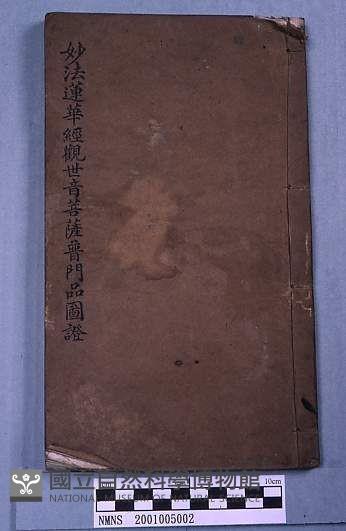 妙法蓮華經觀世音菩薩普門品圖證
國立自然科學博物館
NATIONAL MUSEUM OF NATURAL SCIENCE
10cm
NMNS 2001005002